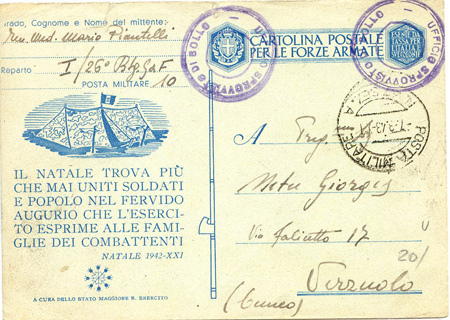 Grado, Cognome e Nome del mittente:
Mario Piantelli
Reparto I/26° Btg. GaF
POSTA MILITARE 10
IL NATALE TROVA PIÙ
CHE MAI UNITI SOLDATI
E POPOLO NEL FERVIDO
AUGURIO CHE L'ESERCI-
TO ESPRIME ALLE FAMI-
GLIE DEI COMBATTENTI
NATALE 1942-XXI
A CURA DELLO STATO MAGGIORE R. ESERCITO
CARTOLINA POSTALE
PER LE FORZE ARMATE
UFFICIO SPROVVISTO DI BOLLO
UFFICIO SPROVVISTO DI BOLLO
POSTA MILITARE
A
Giorgis
Via 17
20/
Verzuolo
(Cuneo)